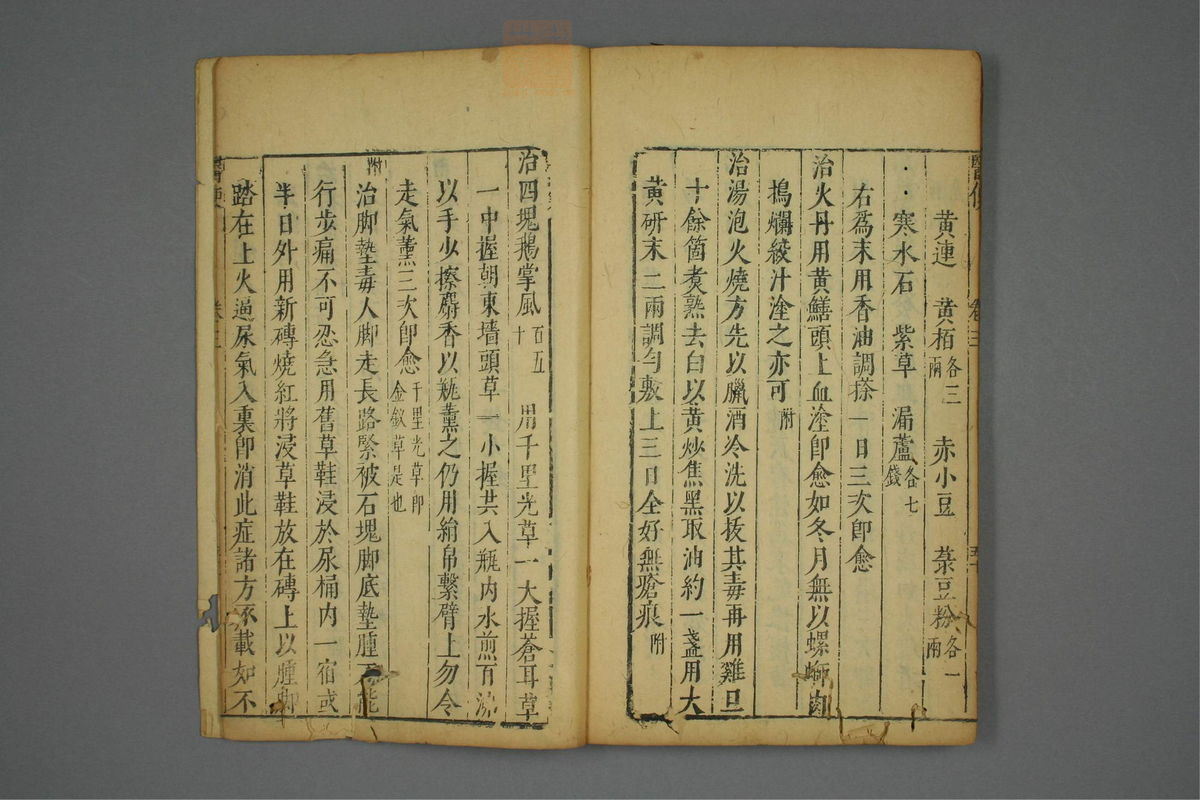 黃連 黃栢各三兩 赤小豆 菉豆粉各一兩
寒水石 紫草 漏蘆各七錢
右爲末用香油調搽一日三次卽愈
治火丹用黃鱔頭上血塗卽愈如冬月無以螺螄肉
搗爛絞汁塗之亦可附
治湯泡火燒方先以臘酒冷洗以拔其毒再用雞旦
十餘箇煑熟去白以黃炒焦黑取油約一盞用大
黃研末二兩調勻敷上三日全好無瘡痕附
治四塊鵝掌風百五十 用千里光草一大握蒼耳草
一中握朝東墻頭草一小握共入瓶內水煎百
以手少擦麝香以瓶薰之仍用絹帛繫臂上勿令
走氣薰三次卽愈千里光草卽金釵草是也
附治脚墊毒人脚走長路緊被石塊脚底墊腫不能
行步痛不可忍急用舊草鞋浸於尿桶內一宿或
半日外用新磚燒紅將浸草鞋放在磚上以腫脚
踏在上火逼尿氣入裏卽消此症諸方不載如不
醫便 卷三